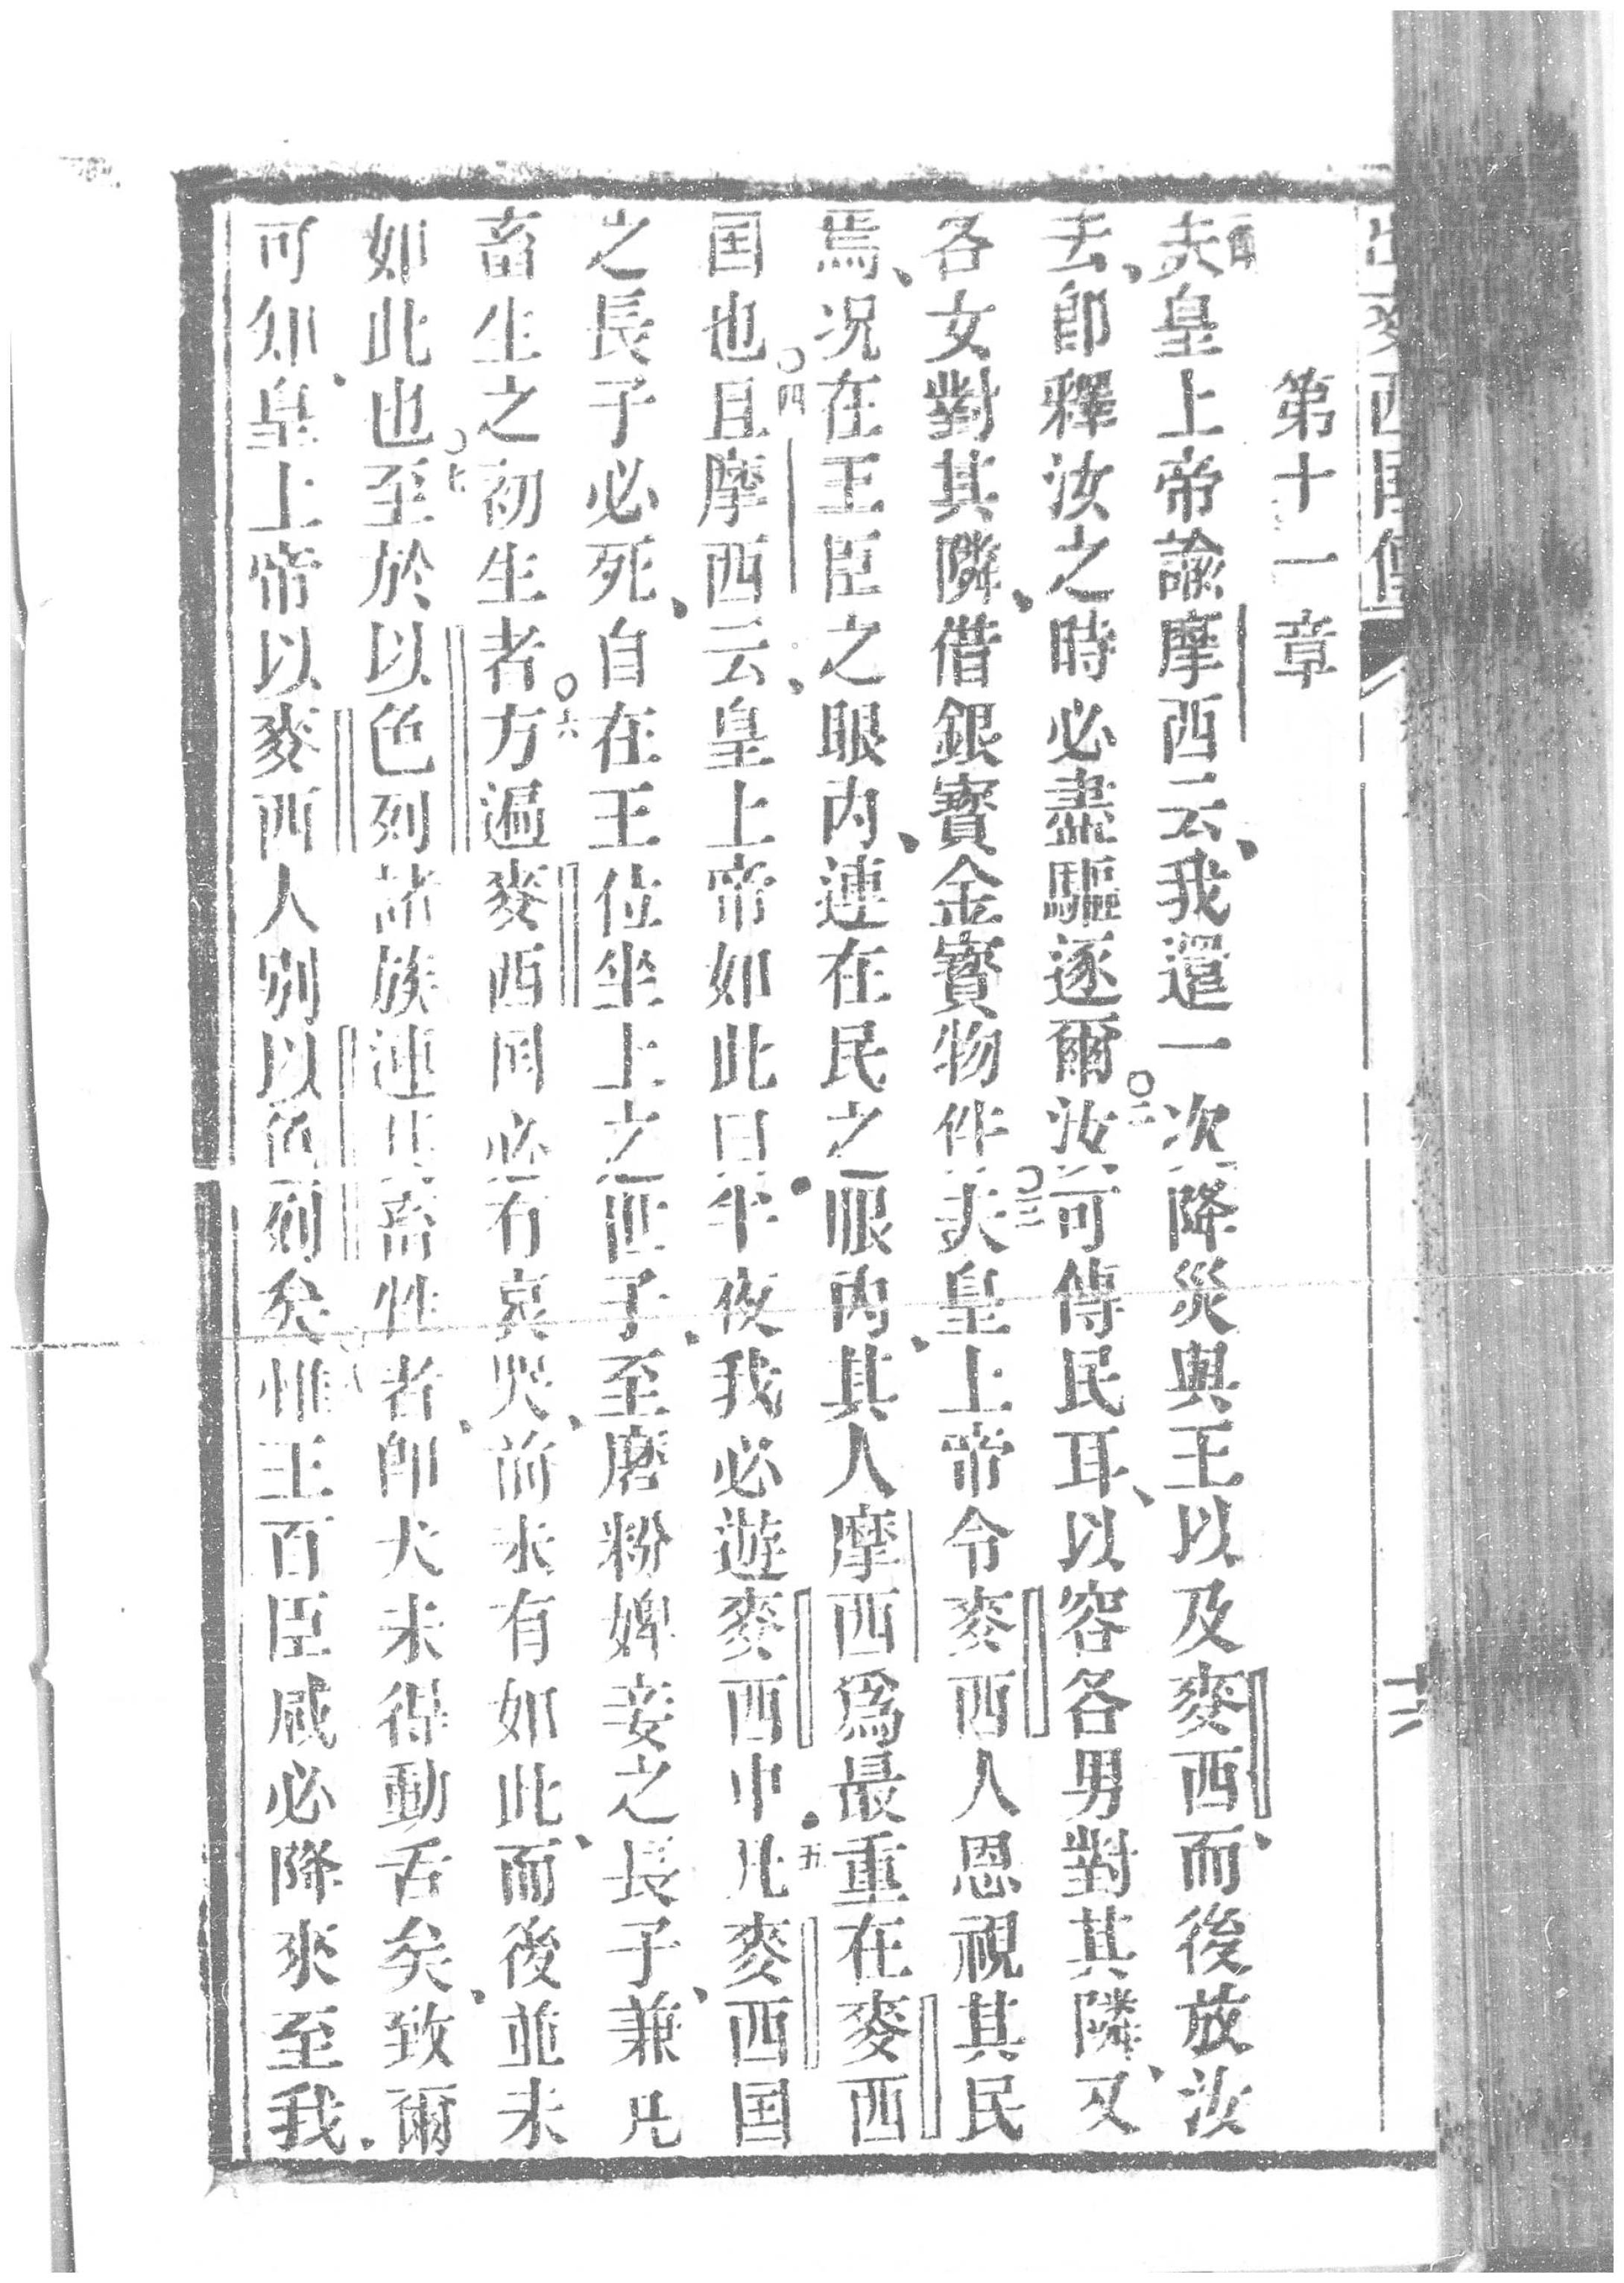 出麥西国傳
十六
第十一章
一節夫皇上帝諭摩西云、我還一次降災與王以及麥西、而後放汝
去、卽釋汝之時必盡驅逐爾○二汝可傳民耳、以容各男對其隣、又
各女對其隣、借銀寳金寳物件○三夫皇上帝令麥西人恩視其民
焉、况在王臣之眼內、連在民之眼內、其人摩西爲最重在麥西
国也○四且摩西云、皇上帝如此曰、半夜我必遊麥西中○五凡麥西国
之長子必死、自在王位坐上之世子、至磨粉婢妾之長子、兼凡
畜生之初生者○六方遍麥西国必有哀哭、前未有如此、而後並未
如此也○七至於以色列諸族連其畜牲者、卽犬未得動舌矣、致爾
可知、皇上帝以麥西人別以色列矣○八惟王百臣咸必降來至我、